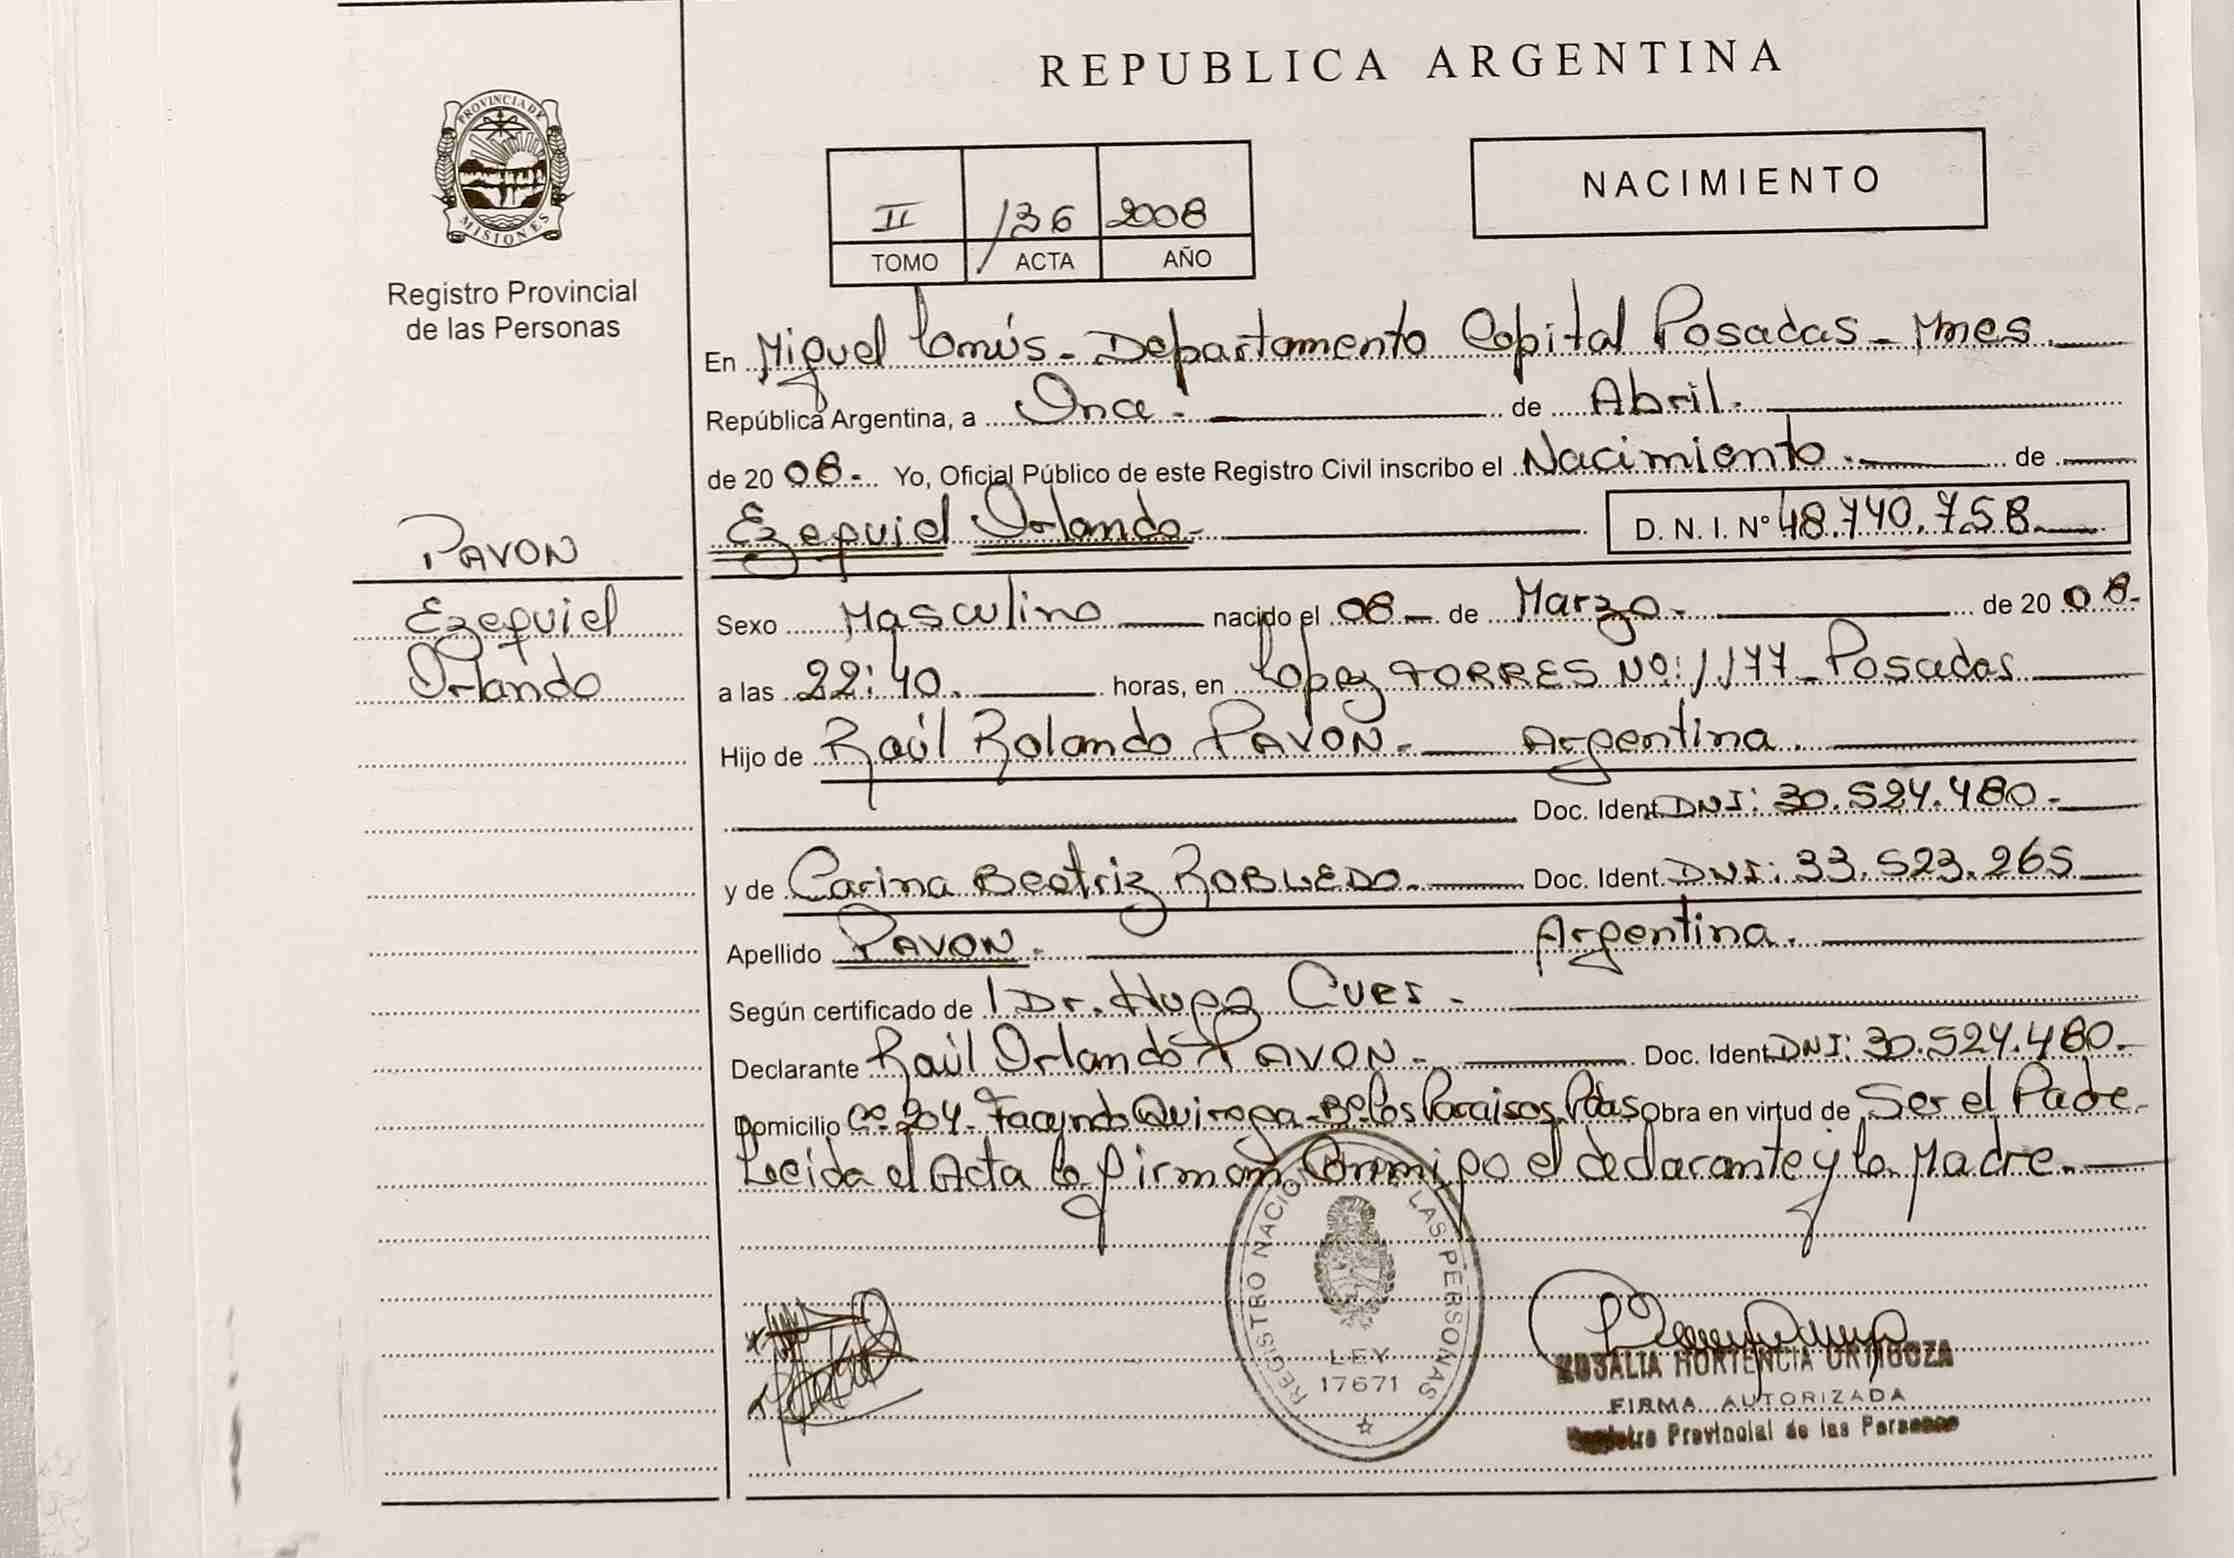 REPUBLICA ARGENTINA
PROVINCIA DE
MISIONES
Registro Provincial
de las Personas
NACIMIENTO
II 136 2008
TOMO ACTA AÑO
En Miguel Lanús - Departamento Capital Posadas - Mnes.
República Argentina, a Once - de Abril.
de 2008. Yo, Oficial Público de este Registro Civil inscribo el Nacimiento. de
Ezequiel Orlando - D. N. I. Nº 48.740.758
PAVON
Ezequiel
Orlando
Sexo Masculino nacido el 08 - de Marzo - de 2008.
a las 22:40. horas, en Lopez TORRES NO: 1177 - Posadas
Hijo de Raúl Rolando PAVON. Argentina.
Doc. Ident. DNI: 30.524.480 -
y de Carina Beatriz ROBLEDO. Doc. Ident. DNI: 33.523.265
Apellido PAVON. Argentina.
Según certificado de Dr. Hugo -
Declarante Raúl Orlando PAVON - Doc. Ident. DNI: 30.524.480.
Domicilio 204 - Facundo Quiroga - Bº Los Paraisos. Pdas Obra en virtud de Ser el Padre.
Leida el Acta la firman Conmigo el declarante y la Madre.
REGISTRO NACIONAL LAS PERSONAS
LEY
17671
ROSALIA HORTENCIA ORTIGOZA
FIRMA AUTORIZADA
Registro Provincial de las Personas